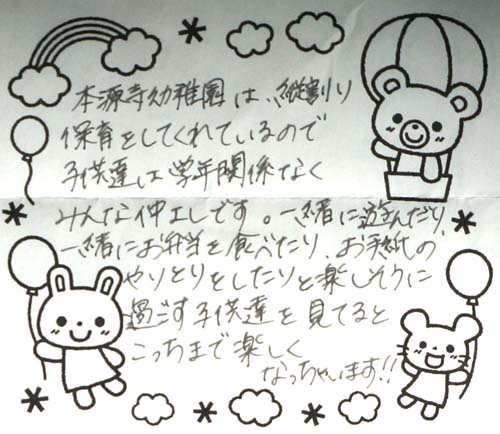 本源寺幼稚園は、縦割り
保育をしてくれているので
子供達は学年関係なく
みんな仲良しです。一緒に遊んだり、
一緒にお弁当を食べたり、お手紙の
やりとりをしたりと楽しそうに
過ごす子供達を見てると
こっちまで楽しく
なっちゃいます!!